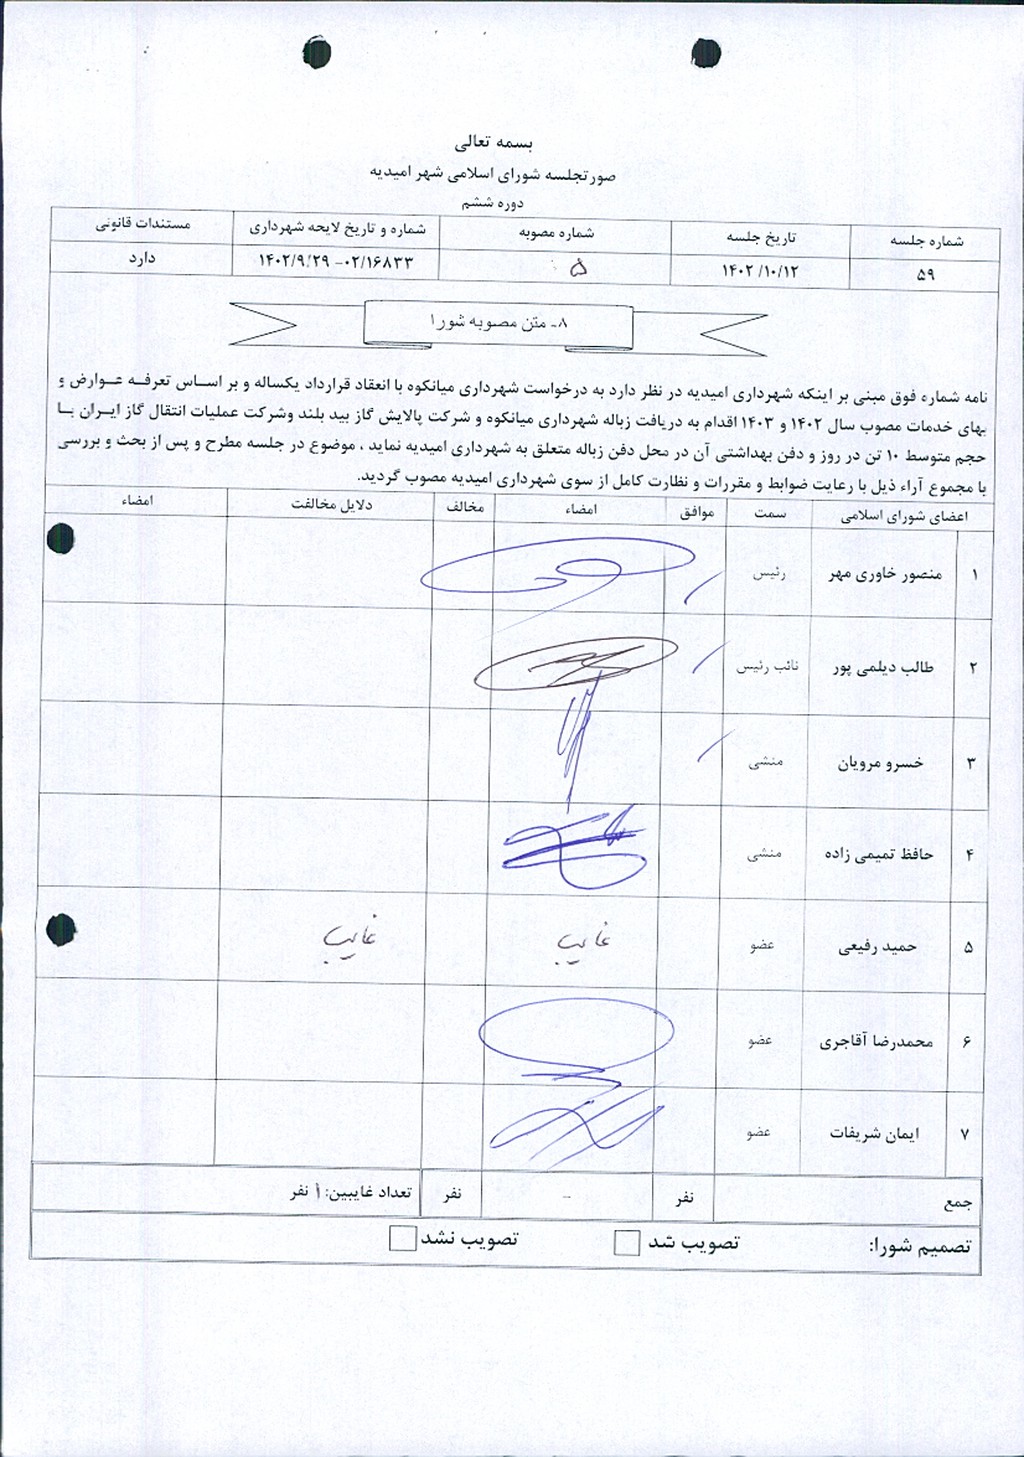 بسمه تعالی
صورتجلسه شورای اسلامی شهر امیدیه
دوره ششم
شماره جلسه تاریخ جلسه شماره مصوبه شماره و تاریخ لایحه شهرداری مستندات قانونی
۵۹ ۱۴۰۲/۱۰/۱۲ ۵ ۰۲/۱۶۸۳۳ -۱۴۰۲/۹/۲۹ دارد
۸- متن مصوبه شورا
نامه شماره فوق مبنی بر اینکه شهرداری امیدیه در نظر دارد به درخواست شهرداری میانکوه با انعقاد قرارداد یکساله و بر اساس تعرفه عوارض و
بهای خدمات مصوب سال ۱۴۰۲ و ۱۴۰۳ اقدام به دریافت زباله شهرداری میانکوه و شرکت پالایش گاز بید بلند وشرکت عملیات انتقال گاز ایران با
حجم متوسط ۱۰ تن در روز و دفن بهداشتی آن در محل دفن زباله متعلق به شهرداری امیدیه نماید ، موضوع در جلسه مطرح و پس از بحث و بررسی
با مجموع آراء ذیل با رعایت ضوابط و مقررات و نظارت کامل از سوی شهرداری امیدیه مصوب گردید.
اعضای شورای اسلامی سمت موافق امضاء مخالف دلایل مخالفت امضاء
۱ منصور خاوری مهر رئیس
۲ طالب دیلمی پور نائب رئیس
۳ خسرو مرویان منشی
۴ حافظ تمیمی زاده منشی
۵ حمید رفیعی عضو غایب غایب
۶ محمدرضا آقاجری عضو
۷ ایمان شریفات عضو
جمع نفر - نفر تعداد غایبین: ۱ نفر
تصمیم شورا: تصویب شد تصویب نشد